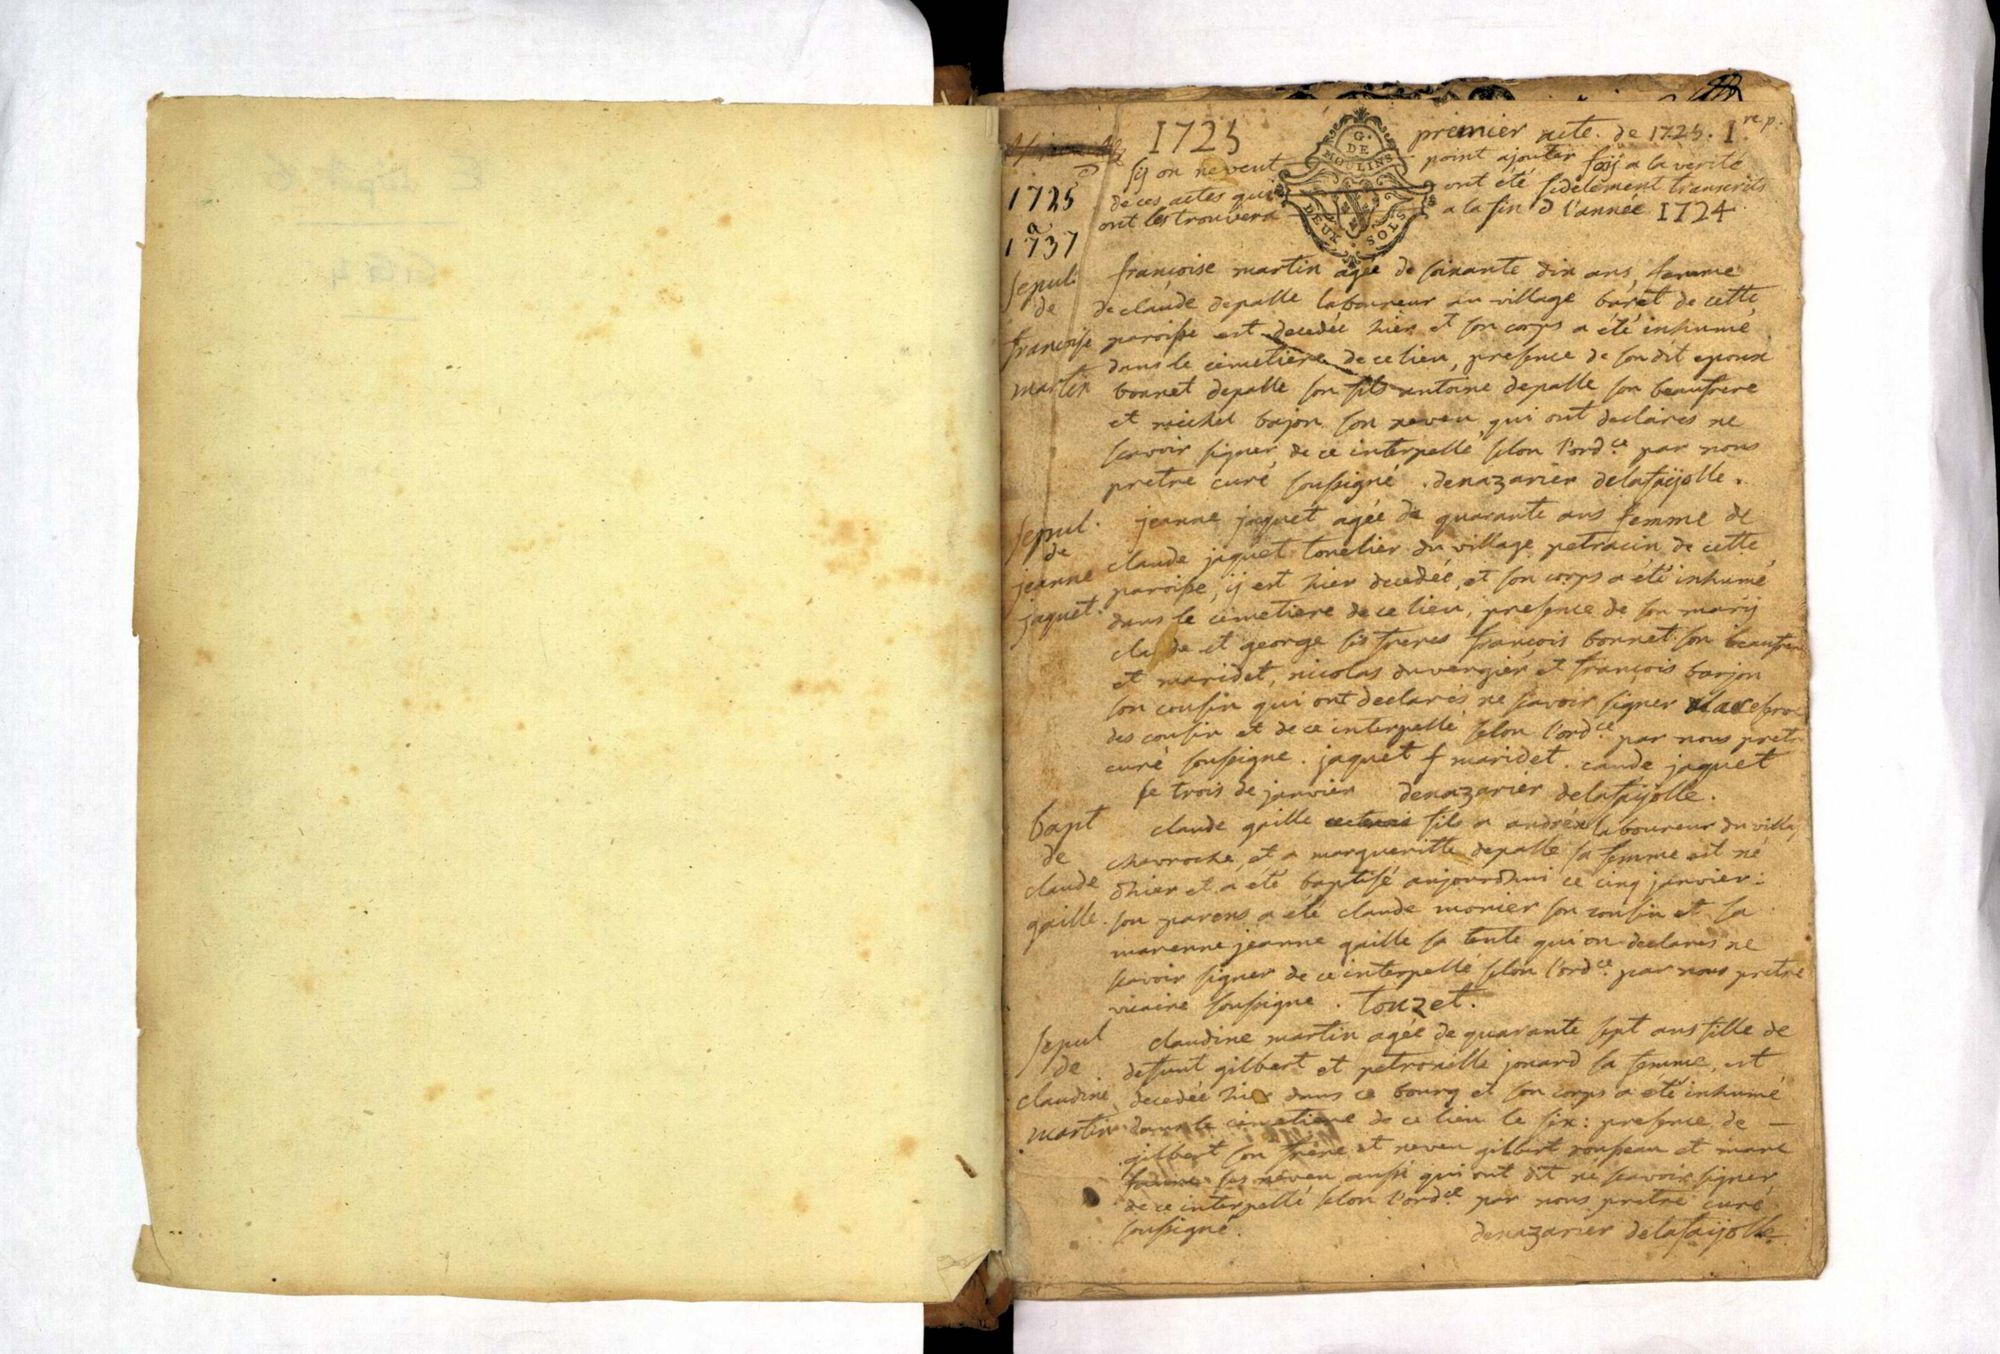 1725
premier acte. de 1725. 1re p.
G.
DE
MOULINS
DEUX SOLS
sy on ne veut point ajouter foij a la verité
de ces actes qui ont été fidelement transcrits
ont les trouvera a la fin d l'année 1724
1725
a
1737
sepul.
de
francoise
martin
françoise martin agée de soixante dix ans, femme
de claude depalle laboureur au village barét de cette
paroisse est decedée hier et son corps a été inhumé
dans le cimetiere de ce lieu, presence de son dit epoux
bonnet depalle son fils antoine depalle son beaufrere
et michel bajon son neveu qui ont declarés ne
scavoir signer de ce interpellé selon l'ordce par nous
pretre curé soussigné. denazarier delafaijolle.
sepul.
de
jeanne
jaquet.
jeanne jaquet agée de quarante ans femme de
claude jaquet tonelier du village petracin de cette
paroisse, ij est hier decedée, et son corps a été inhumé
dans le cimetiere de ce lieu, presence de son marij
claude et george ses freres françois bonnet son beaufrere
et maridet, nicolas duvergier et françois barjon
son cousin qui ont declarés ne scavoir signer
des cousin et de ce interpellé selon l'ordce par nous pretre
curé soussigne. jaquet f maridet. caude jaquet
le trois de janvier denazarier delafaijolle.
bapt
de
claude
gaille.
claude gaille fils a andré laboureur du villa
chavroche, et a margueritte depalle sa femme est né
dhier et a été baptisé aujourdhui ce cinq janvier:
son parens a été claude monier son cousin et sa
marenne jeanne gaille sa tente qui on declarés ne
scavoir signer de ce interpellé selon l'ordce par nous pretre
vicaire soussigne. Touzet.
sepul
de
claudine
martin
claudine martin agée de quarante sept ans fille de
defunt gilbert et petronille jonard sa femme, est
decedée hier dans ce bourg et son corps a été inhumé
dans le cimetiere de ce lieu le six: presence de
gilbert son frere et neveu gilbert rousseau et marc
ses neveu aussi qui ont dit ne scavoir signer
de ce interpellé selon l'ordce par nous pretre curé
soussigné. denazarier delafaijolle